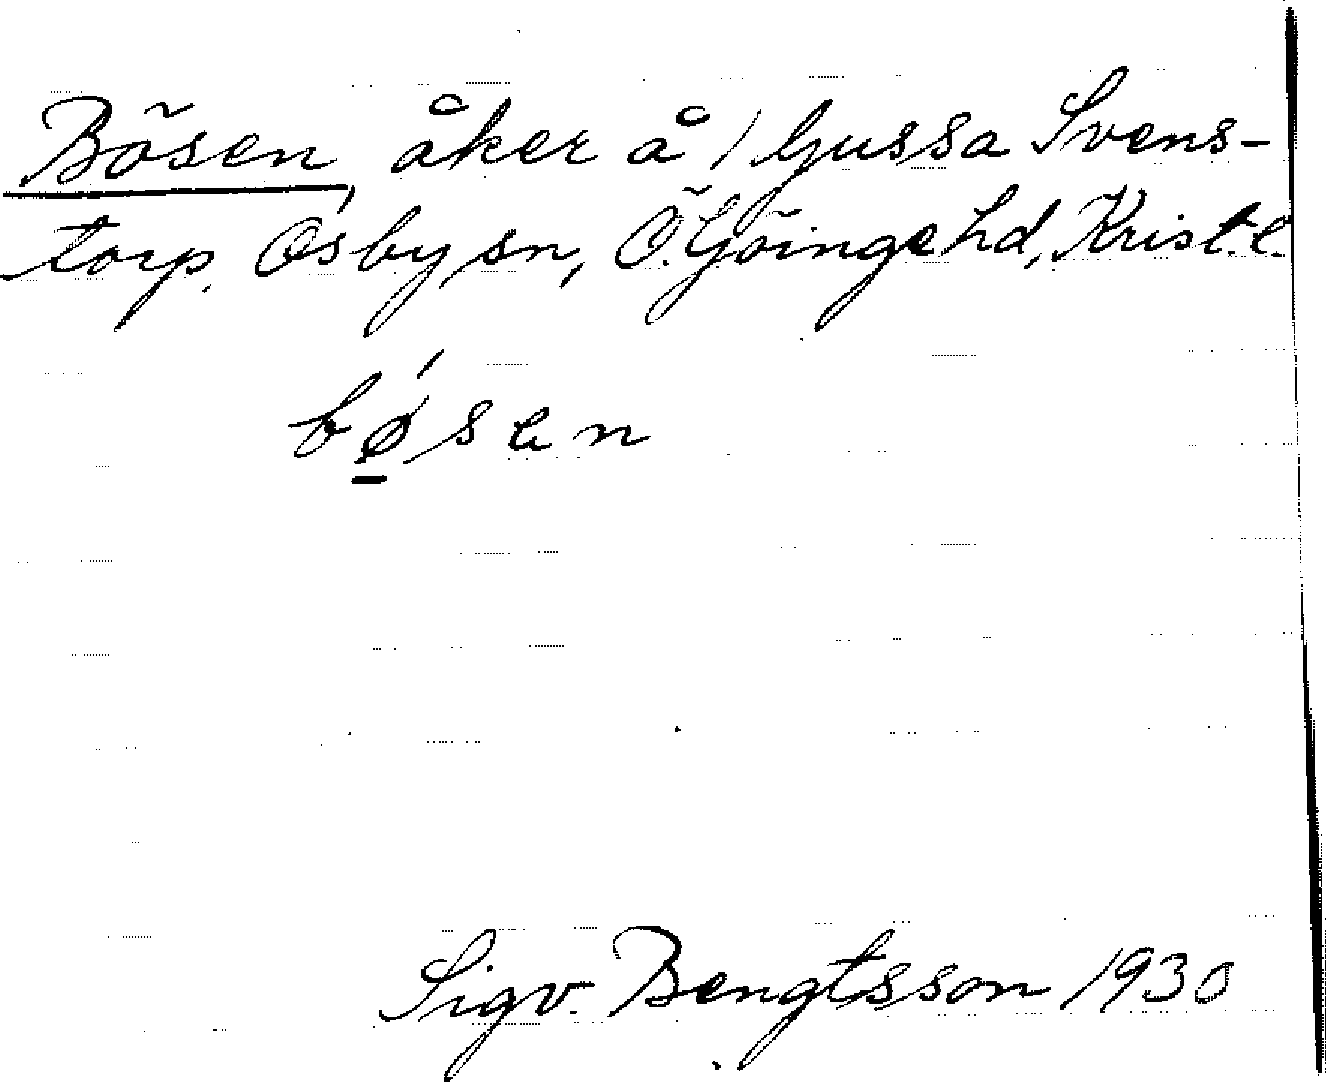 Bösen, åker å 1 Gussa Svens-
torp, Osby sn, Ö. Göinge hd, Krist. l.
bǿsen
Sigv. Bengtsson 1930